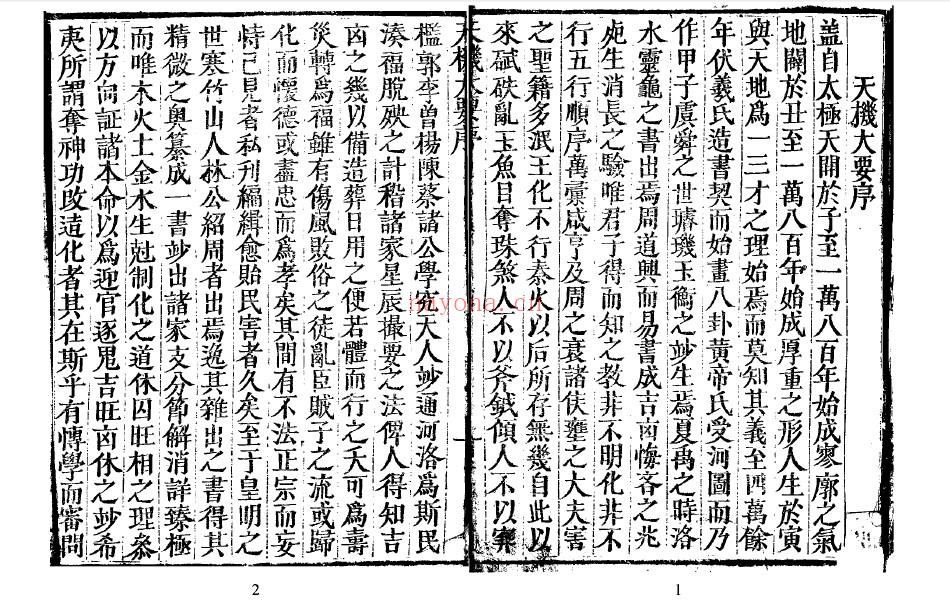 天機大要序
盖自太極天開於子至一萬八百年始成寥廓之氣
地闢於丑至一萬八百年始成厚重之形人生於寅
與天地爲一三才之理始焉而莫知其義至四萬餘
年伏羲氏造書契而始畫八卦黄帝氏受河圖而乃
作甲子虞舜之世璿璣玉衡之妙生焉夏禹之時洛
水靈龜之書出焉周道興而易書成吉凶悔吝之兆
死生消長之驗唯君子得而知之教非不明化非不
行五行順序萬彙咸亨及周之衰諸侯壅之大夫害
之聖籍多泯王化不行秦火以后所存無幾自此以
來碔砆亂玉魚目奪珠煞人不以斧鉞傾人不以寒
天機大要序
檻郭李曽楊陳蔡諸公學究天人妙通河洛爲斯民
湊福脫殃之計稽諸家星辰撮要之法俾人得知吉
凶之幾以備造葬日用之便若體而行之夭可爲壽
災轉爲福雖有傷風敗俗之徒亂臣賊子之流或歸
化而懷德或盡忠而爲孝矣其間有不法正宗而妄
恃己見者私刋編緝愈貽民害者久矣至于皇明之
世寒竹山人林公紹周者出焉逸其雜出之書得其
精微之奥纂成一書妙出諸家支分節解消詳臻極
而唯木火土金水生尅制化之道休囚旺相之理叅
以方向証諸本命以爲迎官逐鬼吉旺凶休之妙希
夷所謂奪神功改造化者其在斯乎有慱學而審問
miyoha.cn
2
1